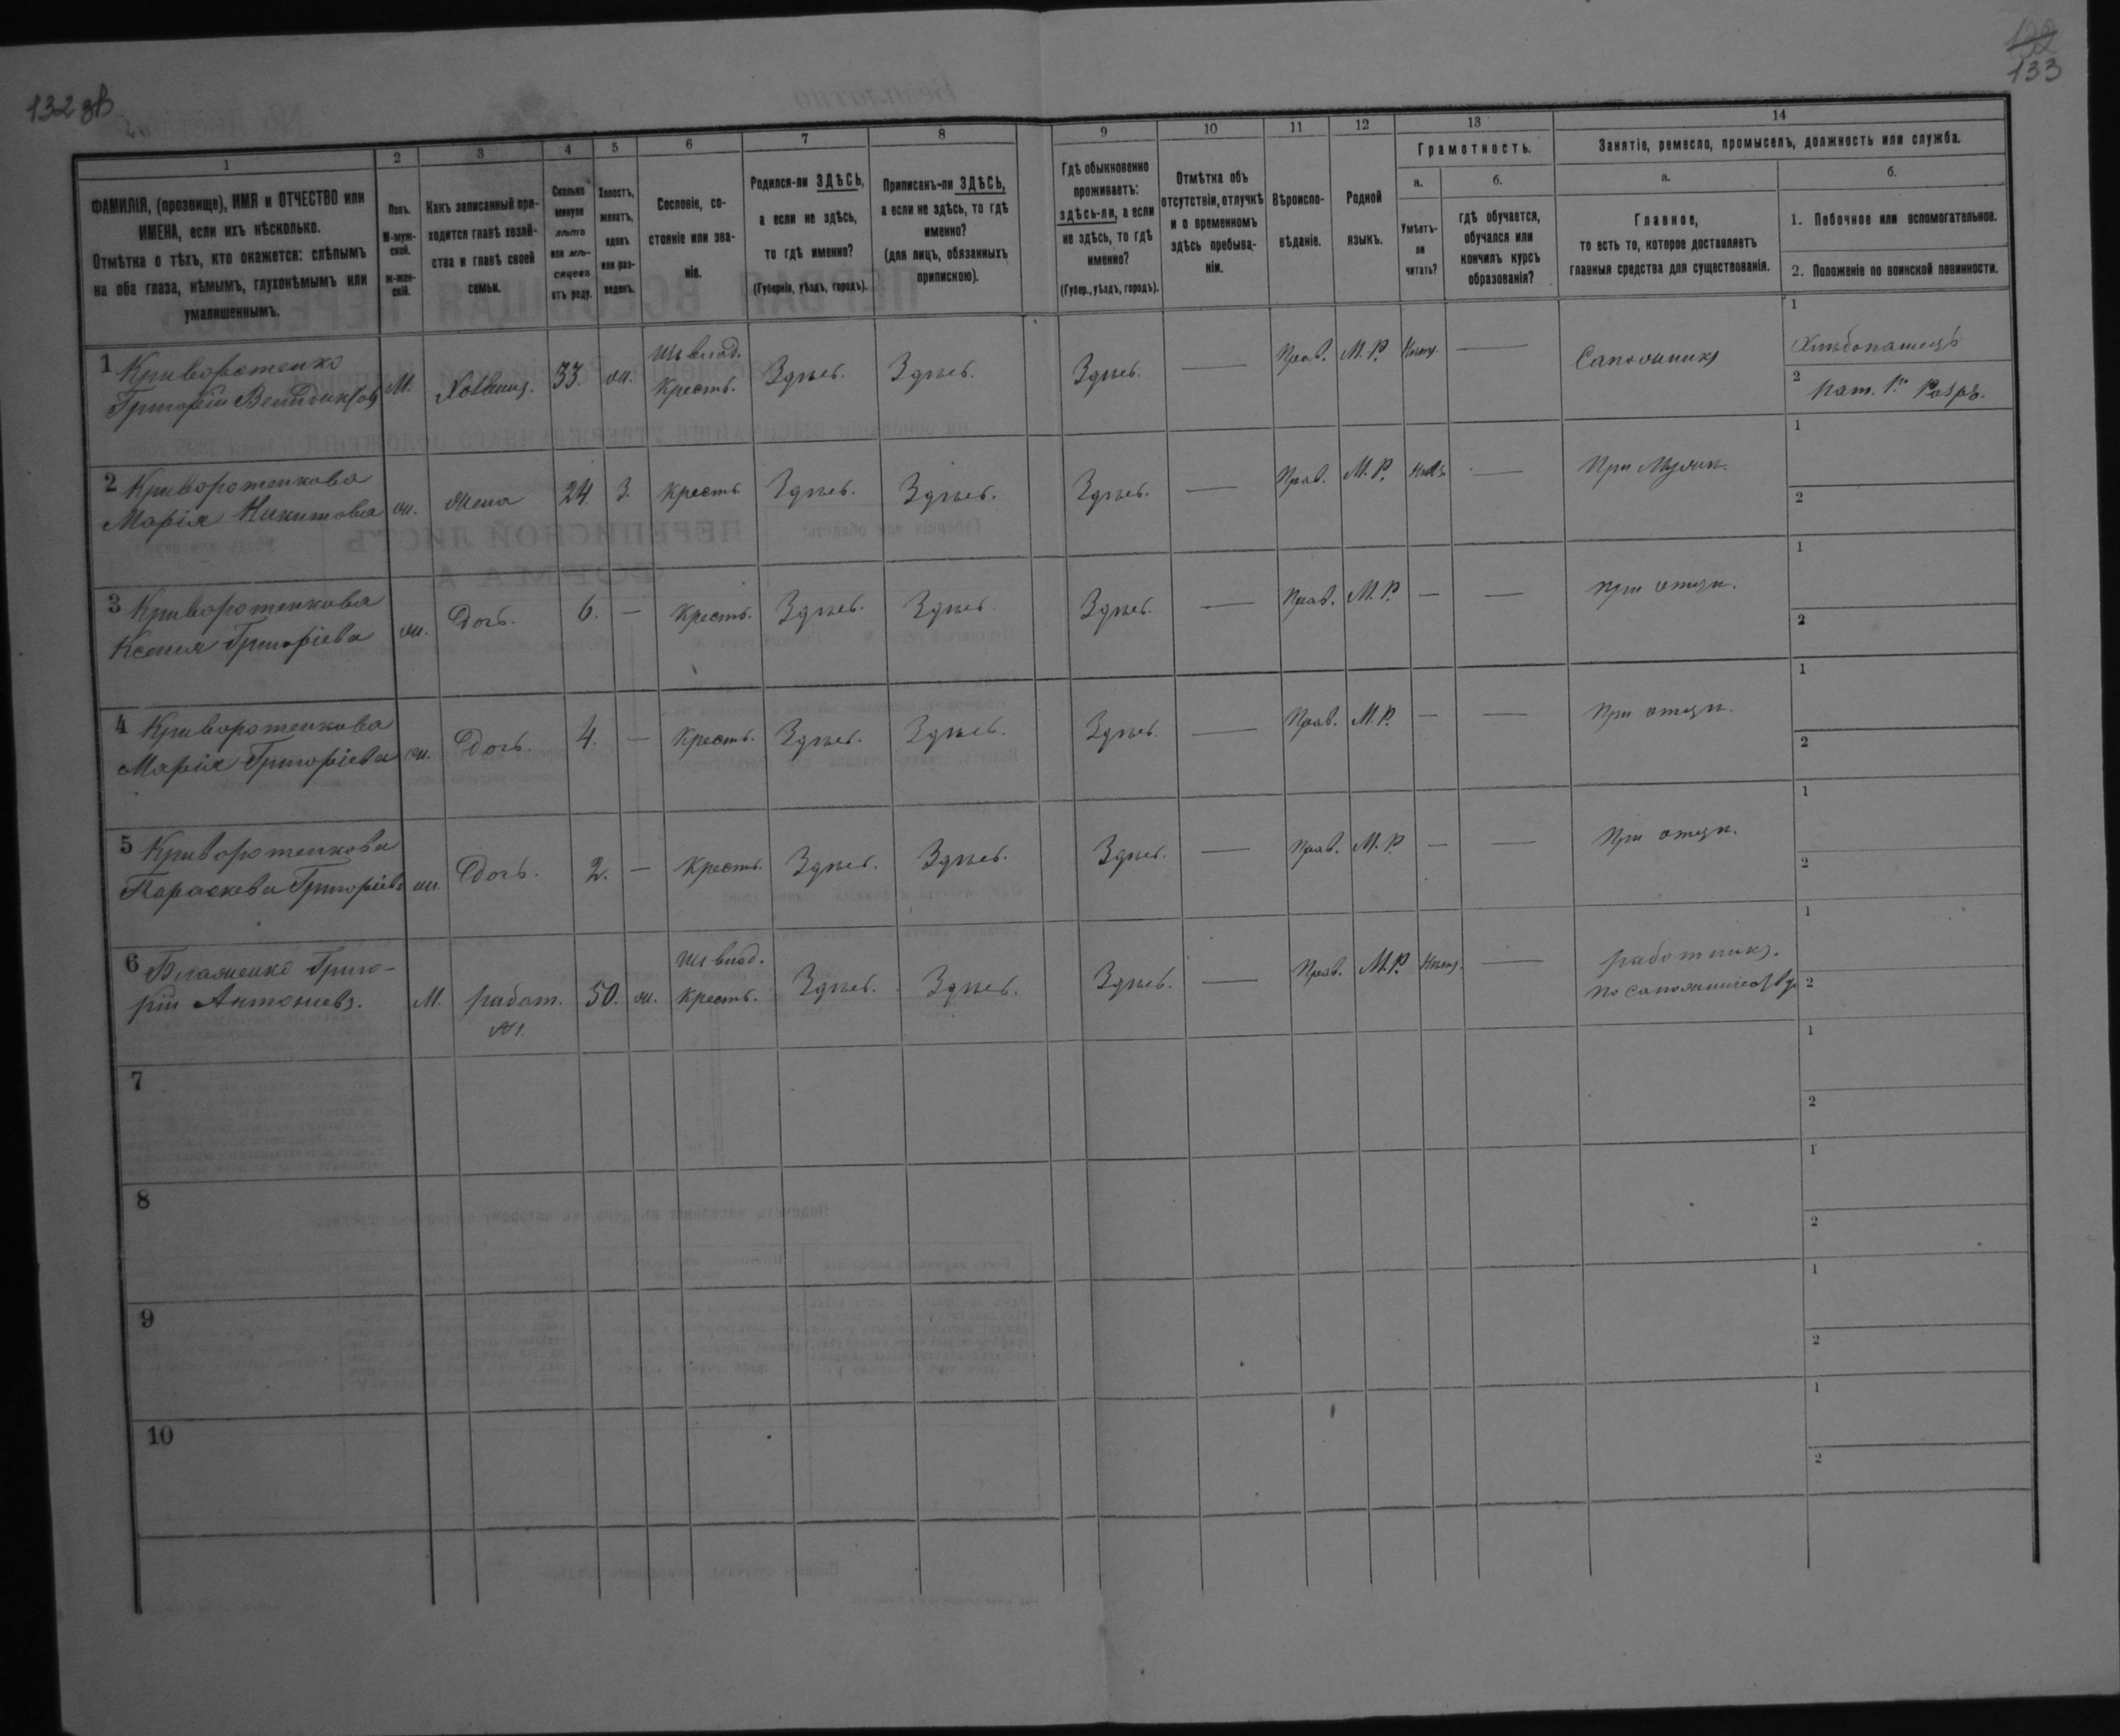 132 зв
122
133
1
2
3
4
5
6
7
8
9
10
11
12
13
14
ФАМИЛІЯ, (прозвище), ИМЯ и ОТЧЕСТВО или
ИМЕНА, если ихъ нѣсколько.
Отмѣтка о тѣхъ, кто окажется: слѣпымъ
на оба глаза, нѣмымъ, глухонѣмымъ или
умалишеннымъ.
Полъ.
М-муж-
ской.
Ж-жен-
скій.
Какъ записанный при-
ходится главѣ хозяй-
ства и главѣ своей
семьи.
Сколько
минуло
лѣтъ
или мѣ-
сяцевъ
отъ роду.
Холостъ,
женатъ,
вдовъ
или раз-
веденъ.
Сословіе, со-
стояніе или зва-
ніе.
Родился-ли ЗДѢСЬ,
а если не здѣсь,
то гдѣ именно?
(Губернія, уѣздъ, городъ).
Приписанъ-ли ЗДѢСЬ,
а если не здѣсь, то гдѣ
именно?
(для лицъ, обязанныхъ
припискою).
Гдѣ обыкновенно
проживаетъ:
здѣсь-ли, а если
не здѣсь, то гдѣ
именно?
(Губер., уѣздъ, городъ).
Отмѣтка объ
отсутствіи, отлучкѣ
и о временномъ
здѣсь пребыва-
ніи.
Вѣроиспо-
вѣданіе.
Родной
языкъ.
Грамотность.
а.
Умѣетъ-
ли
читать?
б.
гдѣ обучается,
обучался или
кончилъ курсъ
образованія?
Занятіе, ремесло, промыселъ, должность или служба.
а.
Главное,
то есть то, которое доставляетъ
главныя средства для существованія.
б.
1. Побочное или вспомогательное.
2. Положеніе по воинской повинности.
1 Криворотенко
Григорій М. Хозяинъ. 33. ж. Крестъ. Здѣсь. Здѣсь. Здѣсь. — Прав. М. Р. Нѣтъ. — Сапожникъ 1 Хлѣбопашецъ
2 Рат. 1го Разр.
2 Криворотенкова
Марія Никитова ж. Жена 24 З. Крестъ. Здѣсь. Здѣсь. Здѣсь. — Прав. М. Р. Нѣтъ — При Мужѣ. 1
2
3 Криворотенкова
Ксенія Григоріева ж. Дочь. 6. — Крестъ. Здѣсь. Здѣсь. Здѣсь. — Прав. М. Р. — — При отцѣ. 1
2
4 Криворотенкова
Марія Григоріева ж. Дочь. 4. — Крестъ. Здѣсь. Здѣсь. Здѣсь. — Прав. М. Р. — — При отцѣ. 1
2
5 Криворотенкова
Параскева Григоріев ж. Дочь. 2. — Крестъ. Здѣсь. Здѣсь. Здѣсь. — Прав. М. Р. — — При отцѣ. 1
2
6 Григо-
рій Антоніевъ. М. работ. 50. ж. Крестъ. Здѣсь. Здѣсь. Здѣсь. — Прав. М. Р. Нѣтъ. — работникъ. 1
2
7 1
2
8 1
2
9 1
2
10 1
2